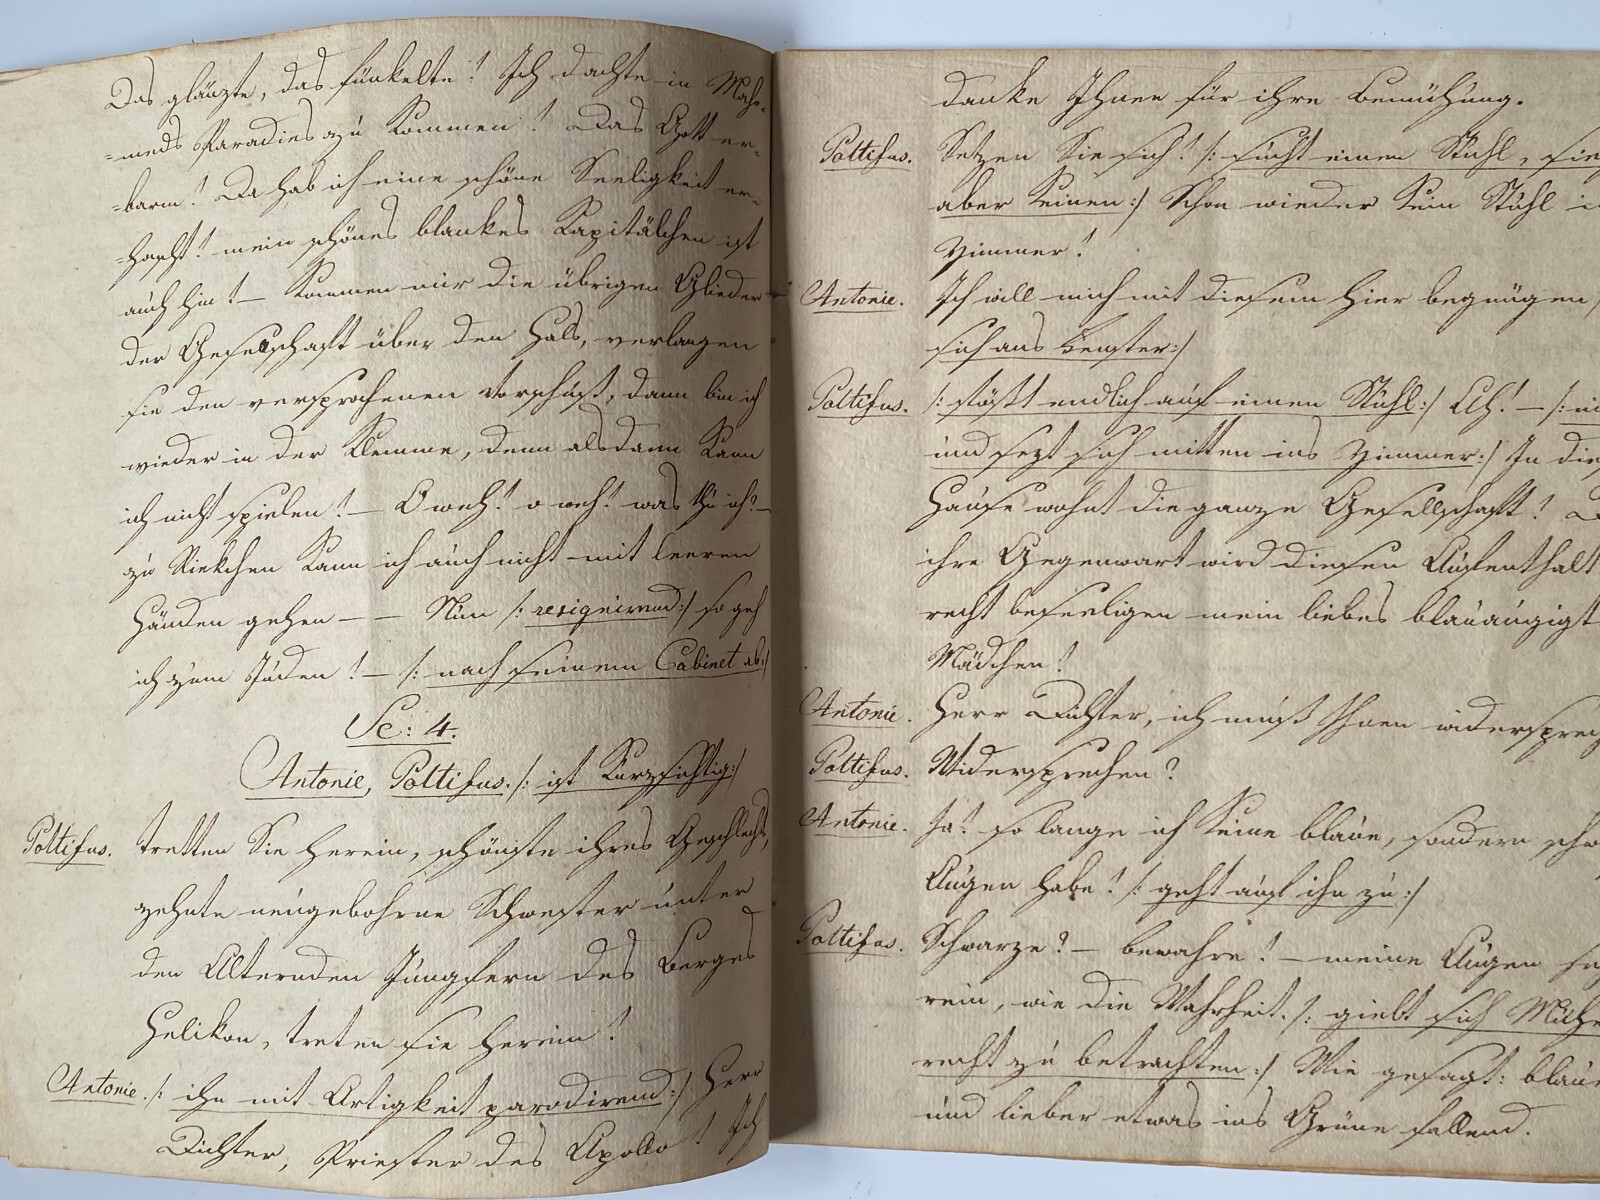 Das glänzte, das funkelte! Ich dachte in Maho-
-meds Paradies zu kommen! Das Gott er-
-barm! Da hab ich eine schöne Seeligkeit er-
-hascht! mein schönes blankes Kapitälchen ist
auch hin! – Kommen mir die übrigen Glieder
der Gesellschaft über den Hals, verlangen
sie den versprochenen Vorschuß, dann bin ich
wieder in der Klemme, denn alsdann kann
ich nicht spielen! – O weh! o weh! was thu ich? –
zu Riekchen kann ich auch nicht mit leeren
Händen gehen – – Nun /: resignirend :/ so geh
ich zum Juden! – /: nach seinem Cabinet ab :/
Sc: 4.
Antonie, Poltifus. /: ist kurzsichtig :/
Poltifus. tretten Sie herein, schönste ihres Geschlechts,
zehnte neugebohrne Schwester unter
den Alternden Jungfern des Berges
Helikon, treten sie herein!
Antonie. /: ihn mit Artigkeit parodirend :/ Herr
Dichter, Priester des Apollo! Ich
danke Ihnen für ihre Bemühung.
Poltifus. Setzen Sie sich! /: sucht einen Stuhl, sie
aber keinen :/ Schon wieder kein Stuhl i
Zimmer!
Antonie. Ich will mich mit diesem hier begnügen,
sich ans Fenster :/
Poltifus. /: stößt endlich auf einen Stuhl :/ Ah! – /: ni
und sezt sich mitten ins Zimmer :/ In die
Hause wohnt die ganze Gesellschaft! D
ihre Gegenwart wird diesen Aufenthalt
recht beseeligen mein liebes blauäugigt
Mädchen!
Antonie. Herr Dichter, ich muß Ihnen widersprech
Poltifus. Widersprechen?
Antonie. Ja! so lange ich keine blaue, sondern schw
Augen habe! /: geht auf ihn zu :/
Poltifus. Schwarze? – bewahre! – meine Augen se
rein, wie die Wahrheit. /: giebt sich Mühe
recht zu betrachten :/ Wie gesagt: blaue
und lieber etwas ins Grüne fallend.